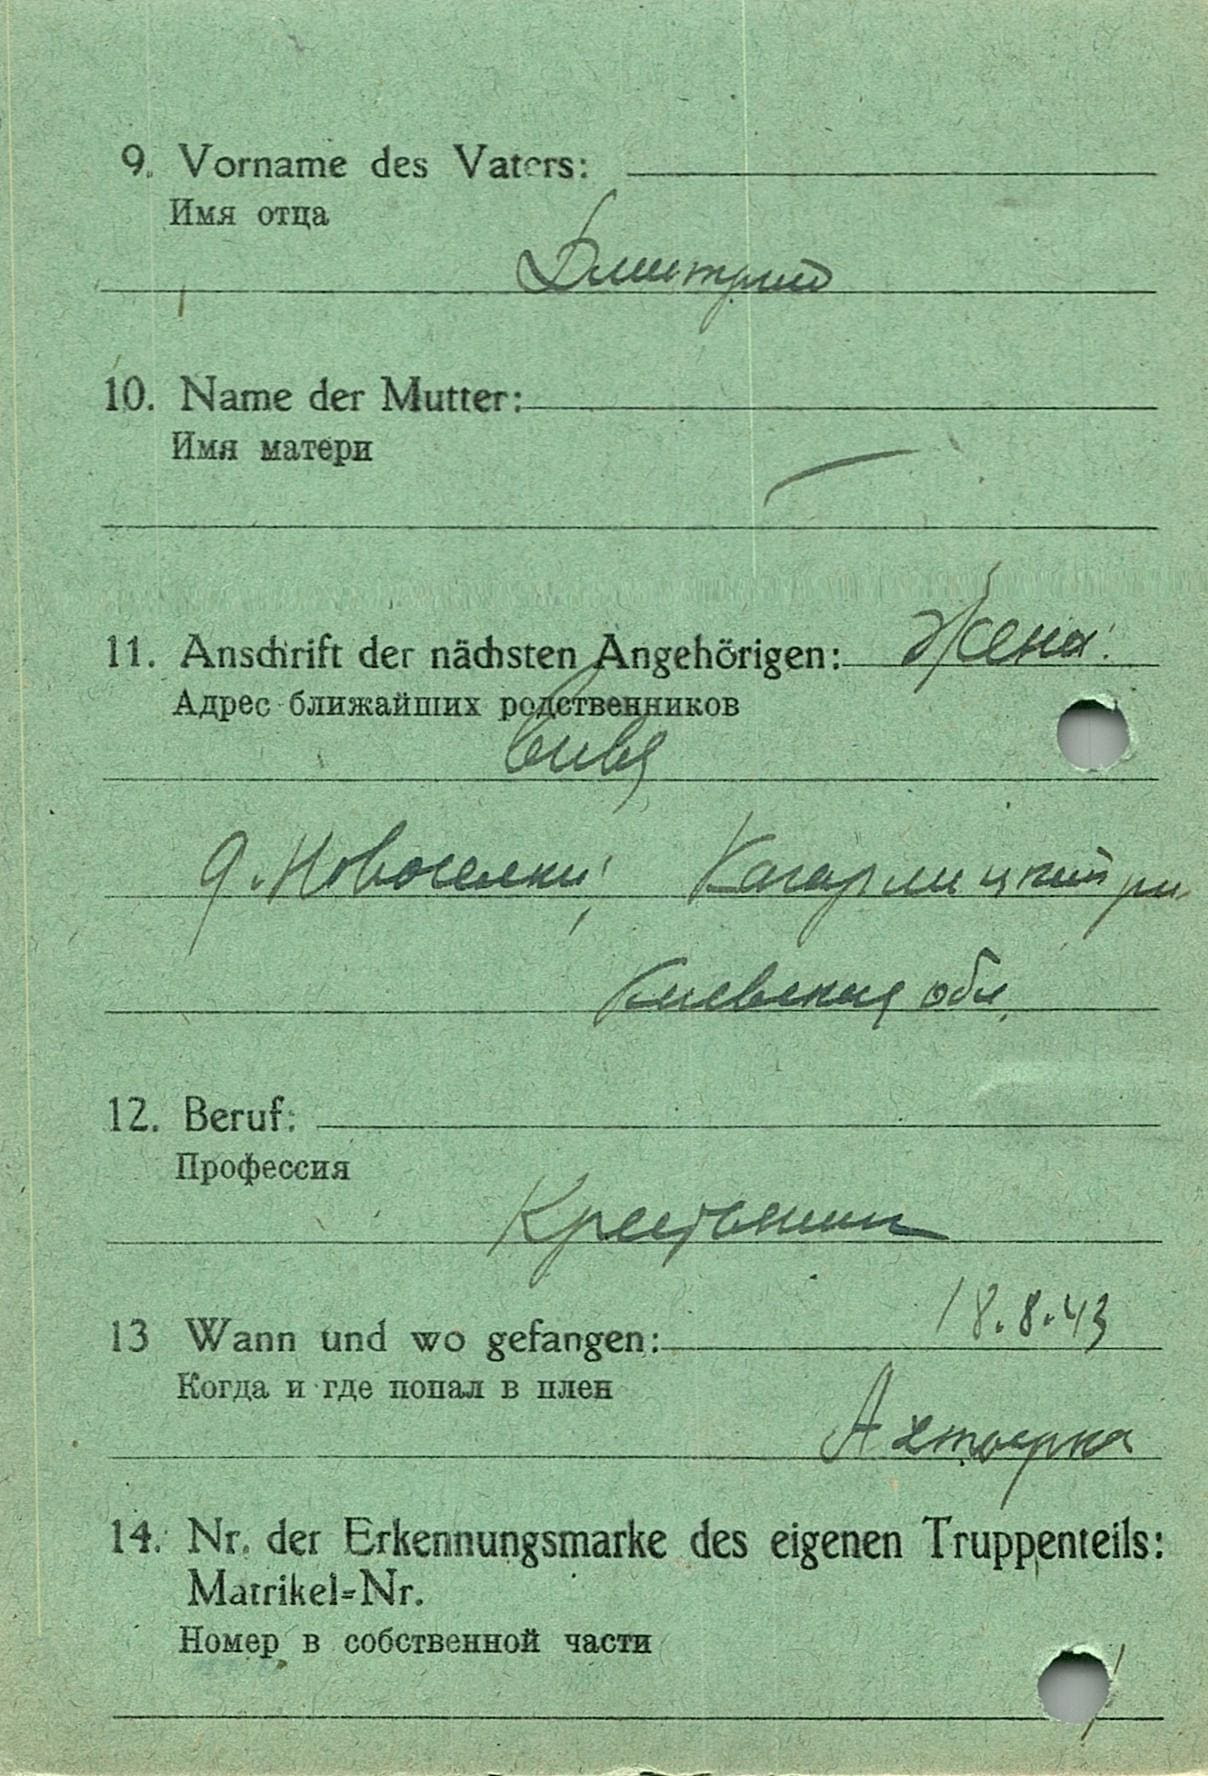 9. Vorname des Vaters:
Имя отца
Дмитрий
10. Name der Mutter:
Имя матери
11. Anschrift der nächsten Angehörigen: Жена:
Адрес ближайших родственников
д. Новоселки, Кагарлицкий
Киевская обл.
12. Beruf:
Профессия
Крестьянин
18.8.43
13 Wann und wo gefangen:
Когда и где попал в плен
Ахтырка
14. Nr. der Erkennungsmarke des eigenen Truppenteils:
Matrikel=Nr.
Номер в собственной части